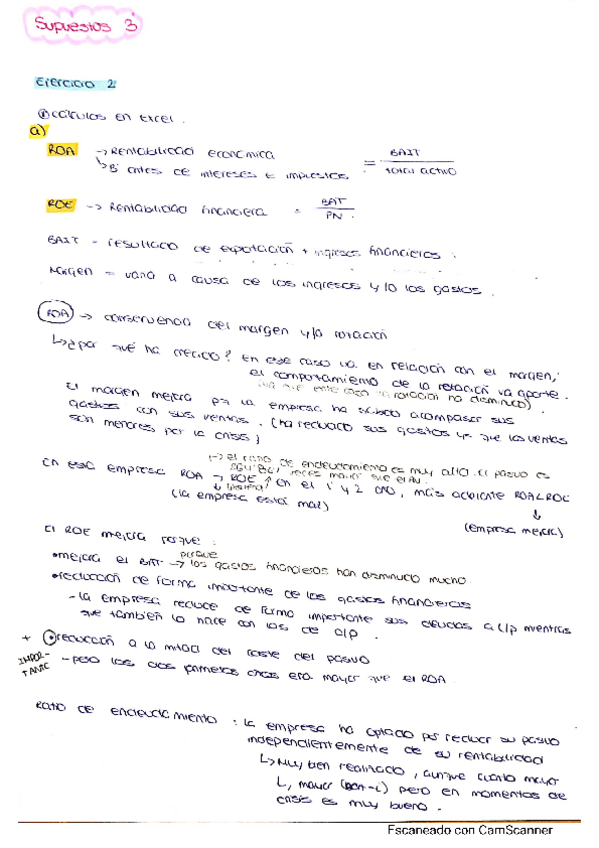 Supuestos 3
Ejercicio 2
cálculos en Excel.
a)
ROA → Rentabilidad económica = BAIT / total activo
↳ Bº antes de intereses e impuestos
ROE → Rentabilidad financiera = BAT / PN.
BAIT = resultado de explotación + ingresos financieros.
Margen = varía a causa de los ingresos y/o los gastos.
ROA → consecuencia del margen y/o rotación
↳ ¿por qué ha crecido? En este caso va en relación con el margen,
el comportamiento de la rotación va aparte.
(ya que en este caso la rotación ha disminuido).
El margen mejora pq la empresa ha sabido acompasar sus
gastos con sus ventas. (ha reducido sus gastos ya que las ventas
son menores por la crisis)
↳ el ratio de endeudamiento es muy alto. El pasivo es
veces mayor que el
En esta empresa ROA → ROE en el 1º y 2 año, más adelante ROA<ROE
(la empresa está mal)
(empresa mejora)
El ROE mejora porque:
• mejora el BAT → porque los gastos financieros han disminuido mucho
• reducción de forma importante de los gastos financieros
- la empresa reduce de forma importante sus deudas a l/p mientras
que también lo hace con las de c/p.
+ • reducción a la mitad del coste del pasivo
IMPOR-
TANTE
- pero los dos primeros años era mayor que el ROA.
Ratio de endeudamiento: la empresa ha optado por reducir su pasivo
independientemente de su rentabilidad
↳ Muy bien realizado, aunque cuanto mayor
L, mayor (ROA-i) pero en momentos de
crisis es muy bueno.
Escaneado con CamScanner